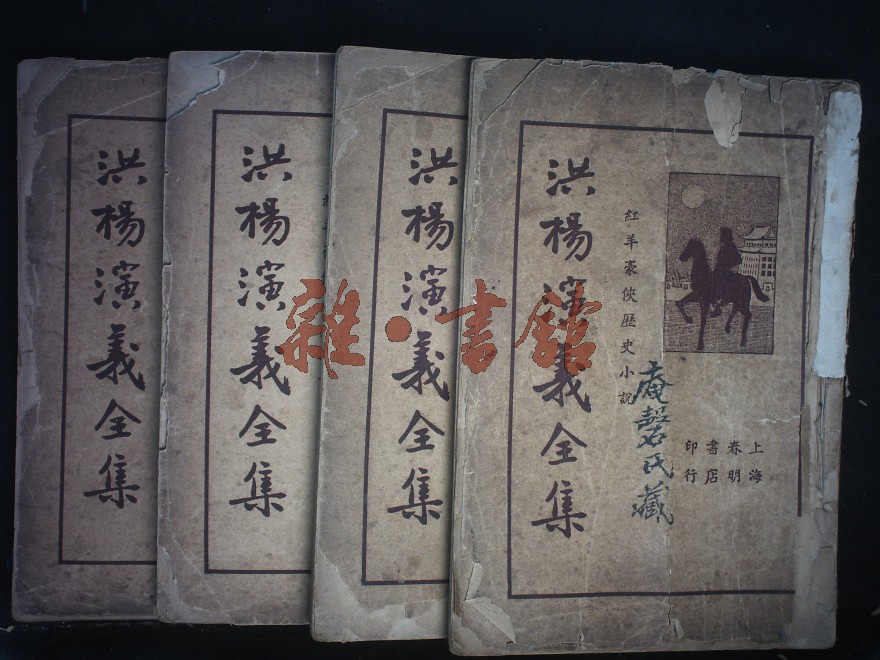 洪楊演義全集
洪楊演義全集
洪楊演義全集
洪楊演義全集
紅羊豪俠歷史小說
上海
春明
書店
印行
庵磬氏藏
雜·書館